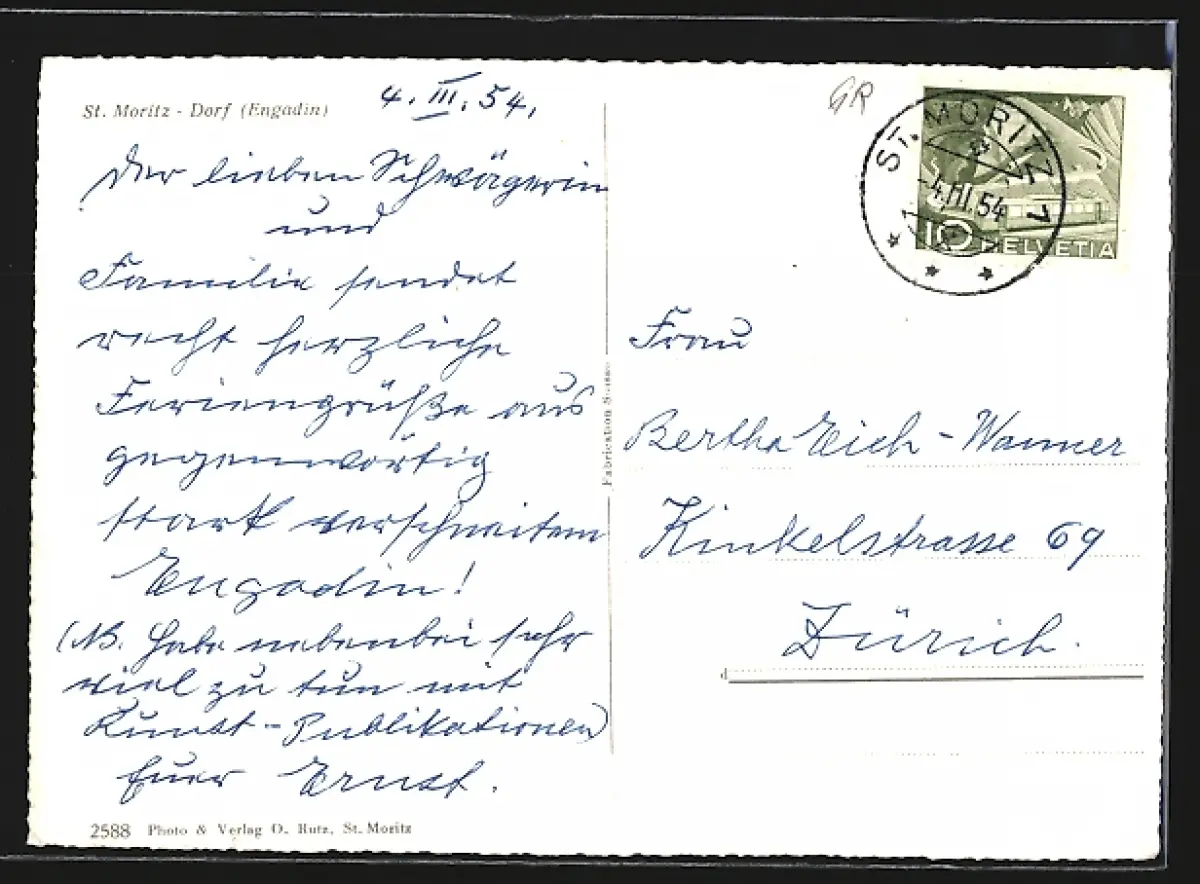 St. Moritz - Dorf (Engadin)
4. III. 54.
Der lieben Schwägerin
und
Familie sendet
recht herzliche
Feriengrüße aus
gegenwärtig
stark verschneitem
Engadin!
(NB. Habe nebenbei sehr
viel zu tun mit
Kunst-Publikationen)
Euer Ernst.
2588 Photo & Verlag O. Rutz, St. Moritz
Fabrication Suisse
GR
ST. MORITZ 1
-4.III.54
10 HELVETIA
Frau
Bertha Eich-Wanner
Kinkelstrasse 69
Zürich.